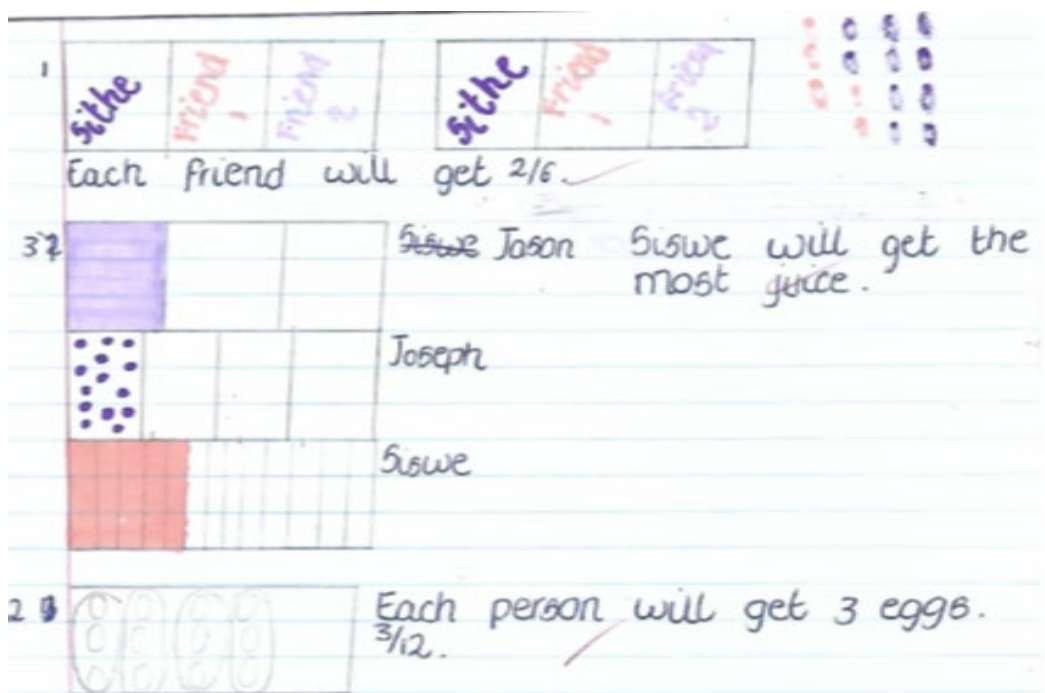 1
Sithe Friend 1 Friend 2 Sithe Friend 1 Friend 2
Each friend will get 2/6.
3 Jason Siswe will get the
most juice.
Joseph
Siswe
2 Each person will get 3 eggs.
3/12.